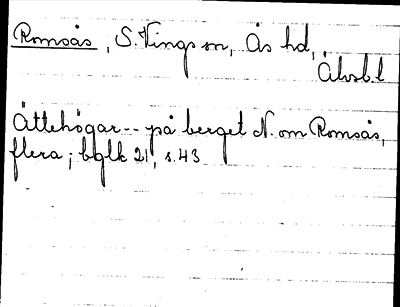 Romsås, S. Vings sn, Ås hd,
Älvsb.l
Ättehögar -- på berget N. om Romsås,
flera; bglk 21, s. 43